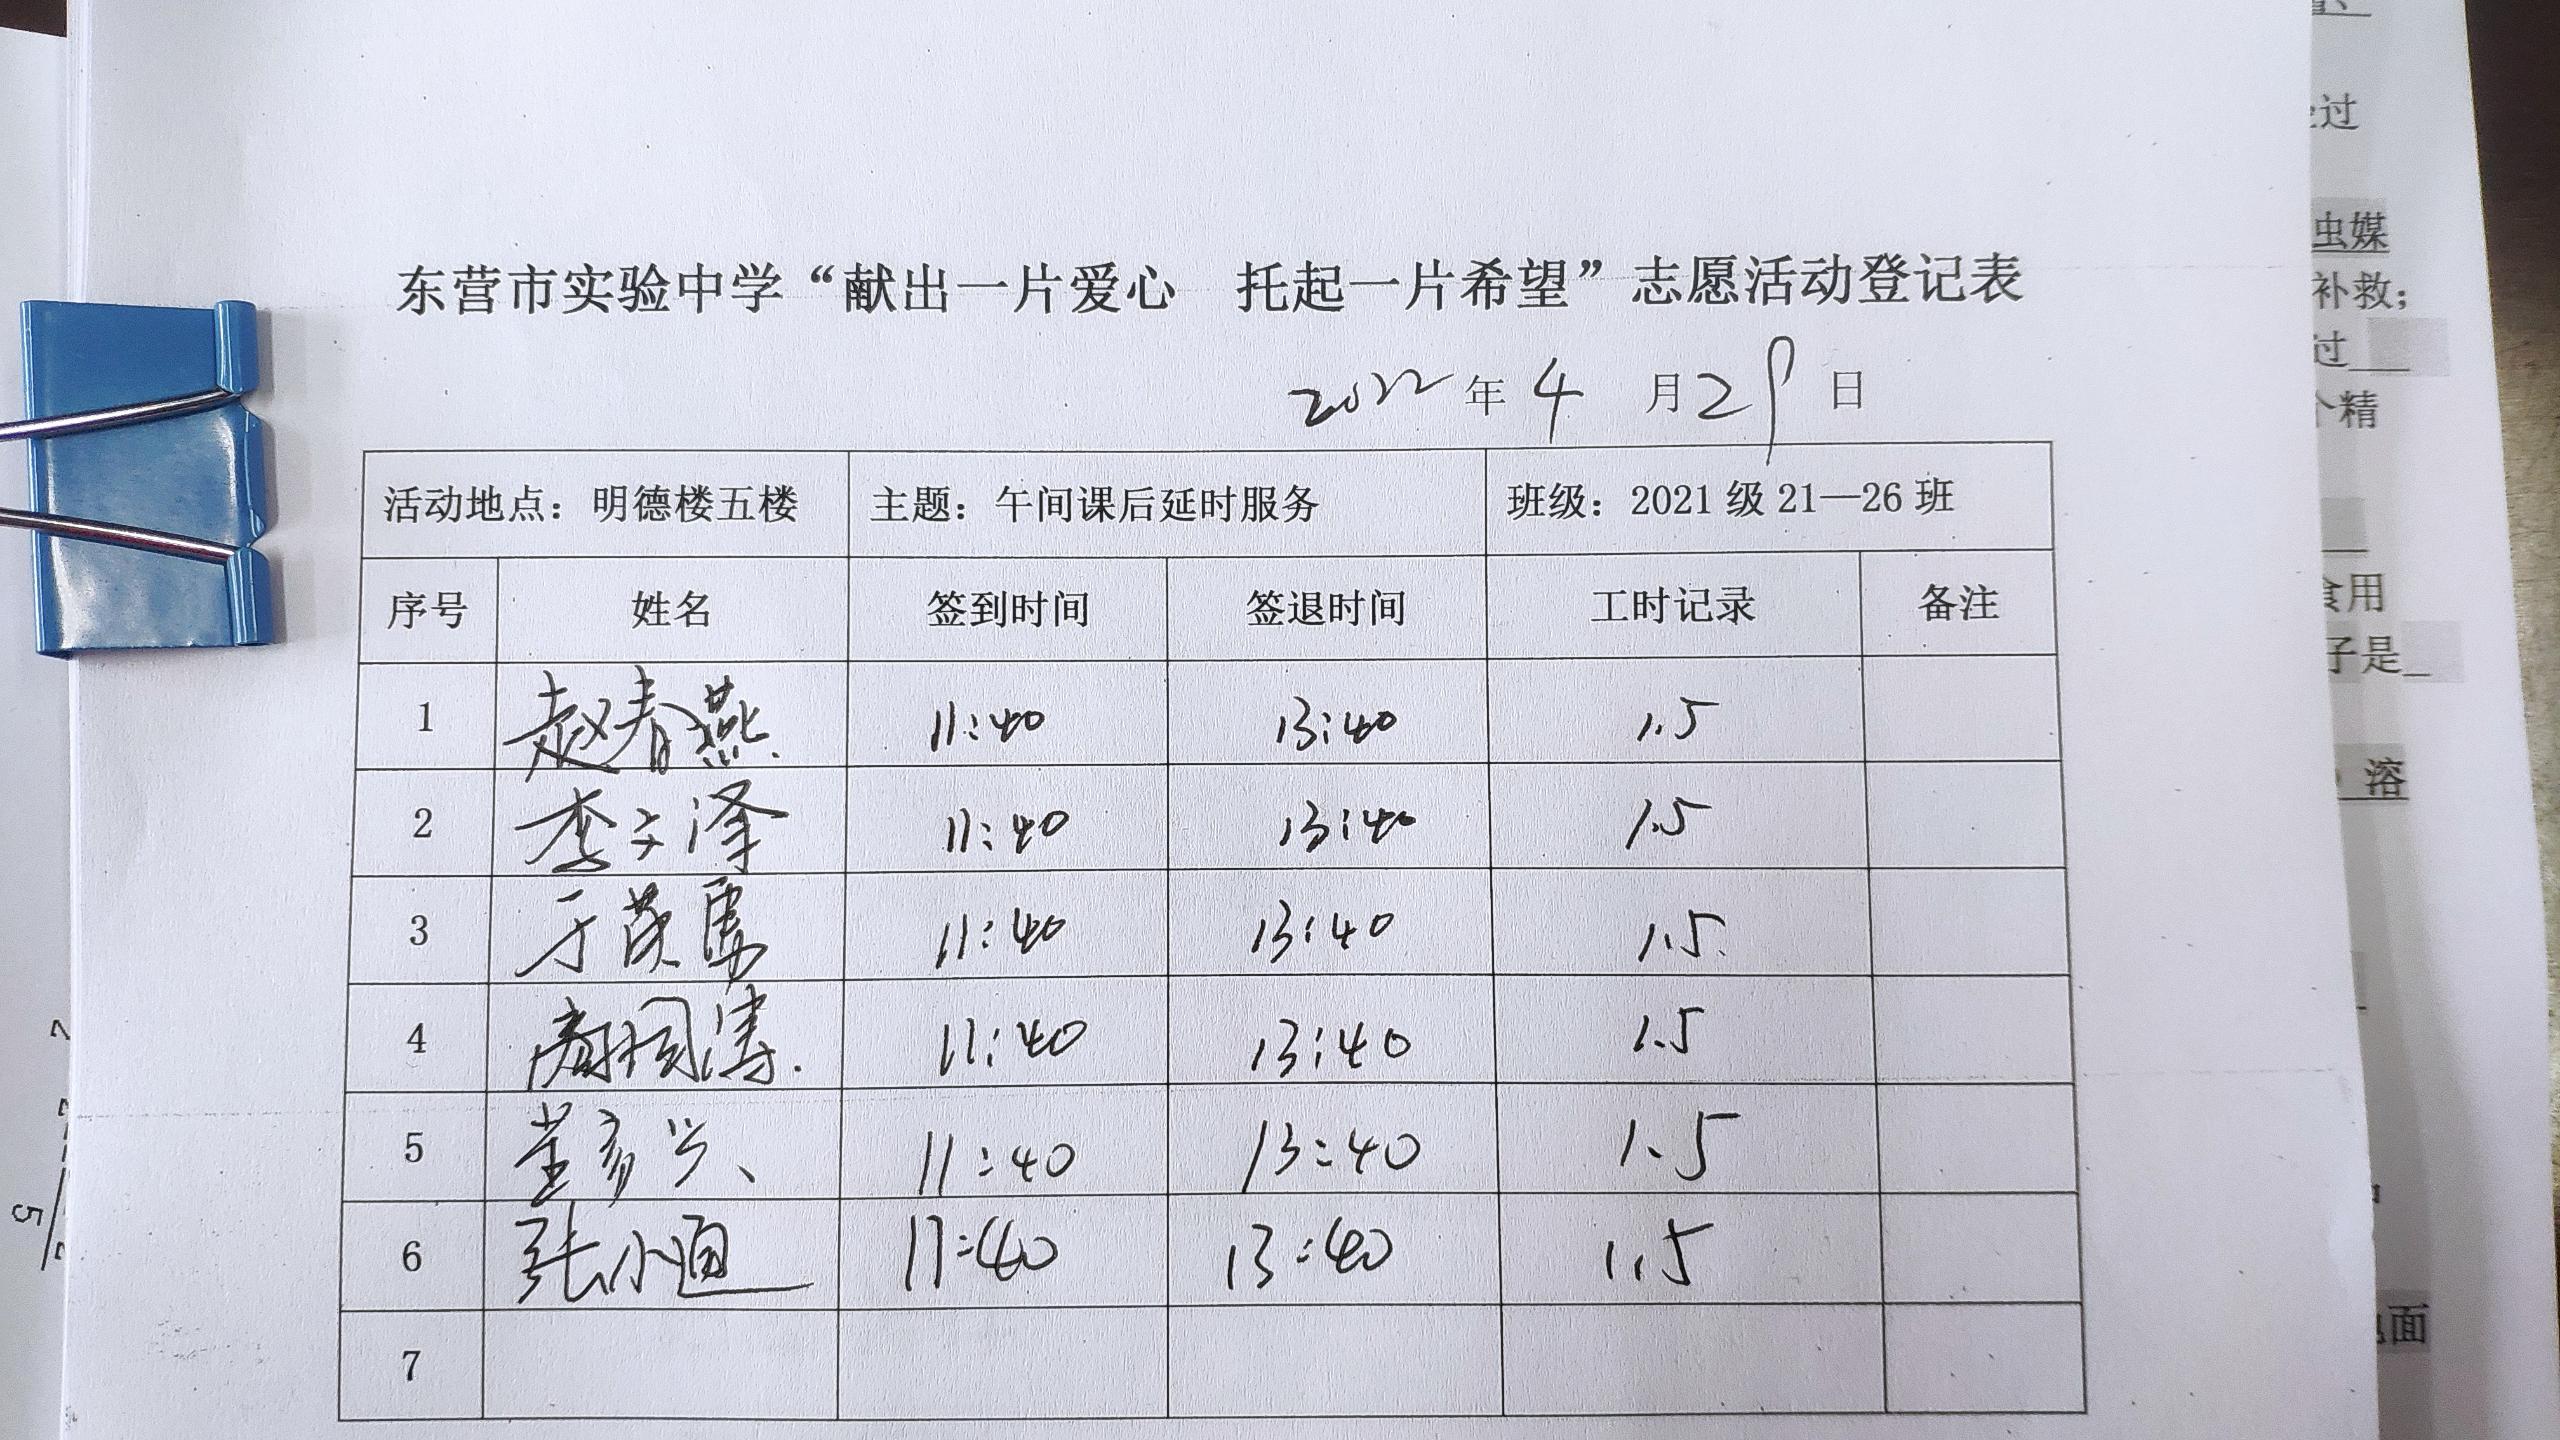 东营市实验中学“献出一片爱心 托起一片希望”志愿活动登记表
2022年4月29日
活动地点：明德楼五楼 主题：午间课后延时服务 班级：2021级21—26班
序号 姓名 签到时间 签退时间 工时记录 备注
1 赵春燕 11:40 13:40 1.5
2 李子泽 11:40 13:40 1.5
3 于 11:40 13:40 1.5
4 11:40 13:40 1.5
5 董彦兴 11:40 13:40 1.5
6 张小 11:40 13:40 1.5
7
过
虫媒
补救；
过
个精
食用
子是
溶
面
5